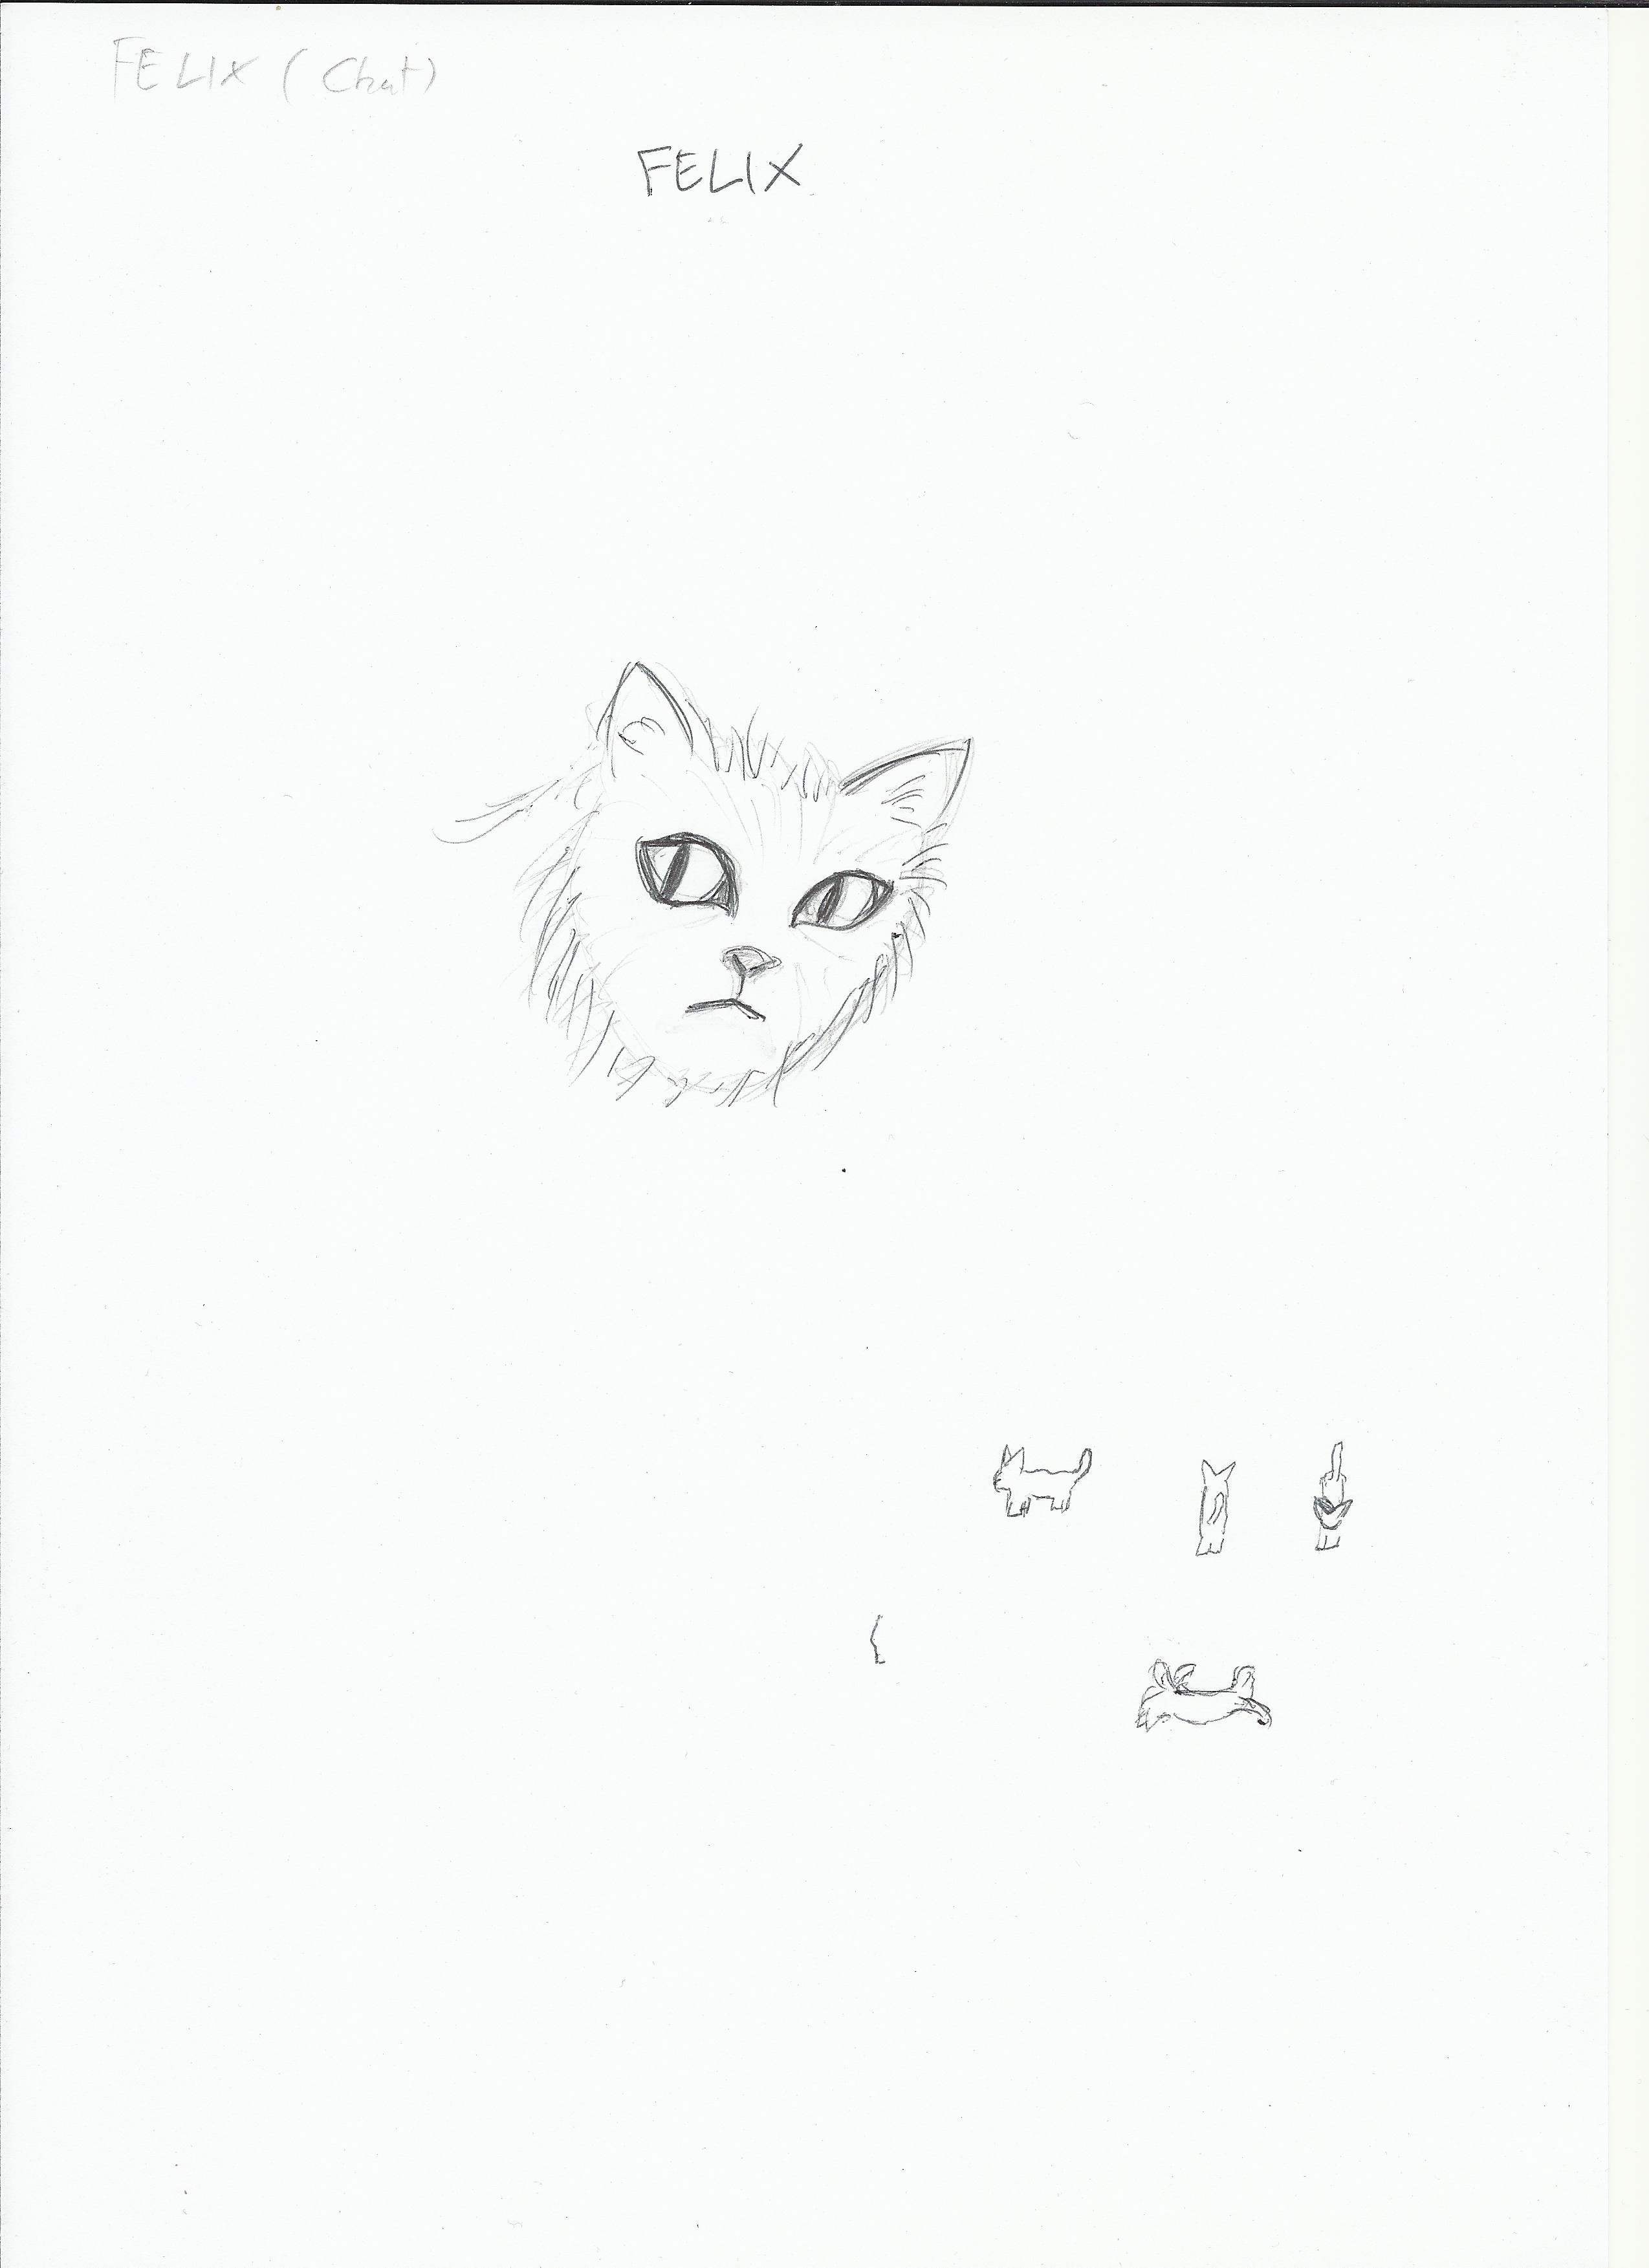 FELIX (Chat)
FELIX